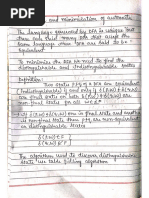 and minimization of automata
The language generated by DFA is unique but
there can exist many DFA that accept the
same language these DFA are said to be
equivalent
To minimize the DFA we need to find the
distinguishable and Indistinguishable states
Definition:
Two States P & q are equivalent
(Indistinguishable) if and only if δ(P,w) & δ(q,w)
are final states or both δ(P,w) & δ(q,w) are
non-final state for all w∈Σ*
If δ(P,w) and δ(q,w) are in final state and
non-final state then P & q are non-equivalent
or distinguishable states
δ(P,w)∈F
δ(q,w)∉F
The algorithm used to discover distinguishable
state use table filling algorithm